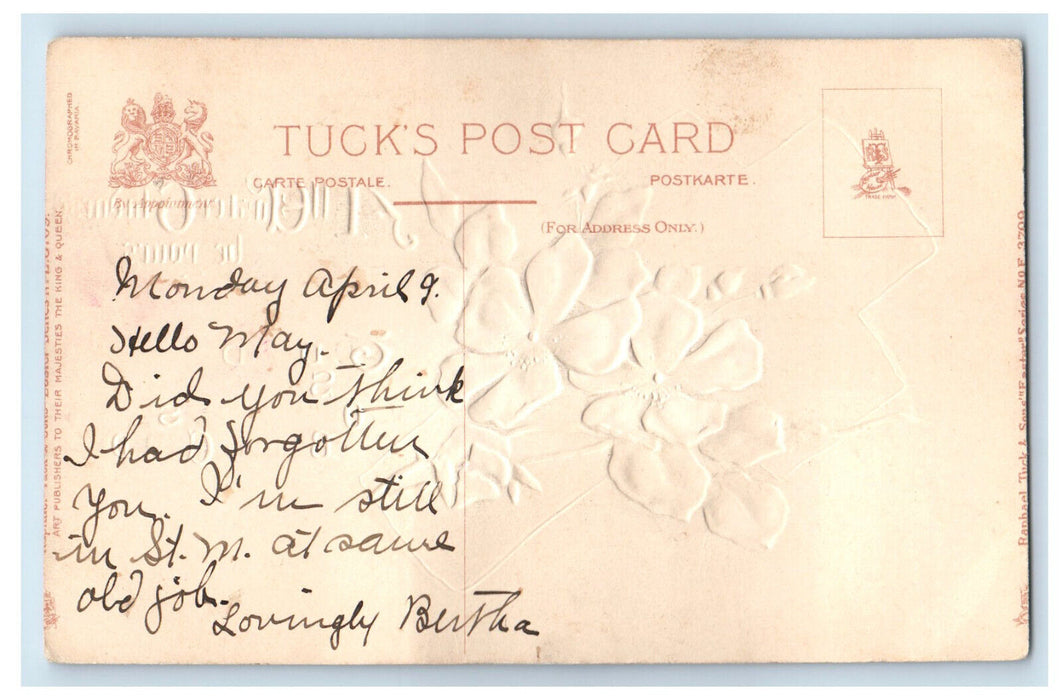 CHROMOGRAPHED
IN BAVARIA
TUCK'S POST CARD
CARTE POSTALE.
POSTKARTE.
By Appointment
(FOR ADDRESS ONLY.)
TRADE MARK
Monday April 9.
Hello May.
Did you think
I had forgotten
you. I'm still
in St. M. at same
old job.
Lovingly Bertha
ART PUBLISHERS TO THEIR MAJESTIES THE KING & QUEEN.
Raphael Tuck & Sons' "Easter" Series No E. 3709